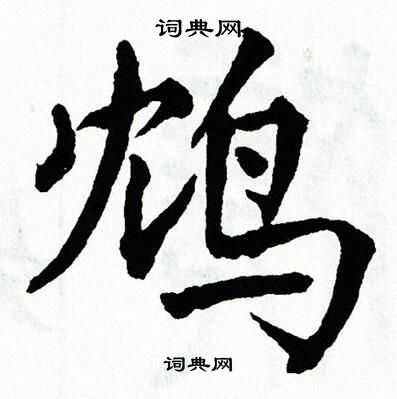 词典网
鸩
词典网